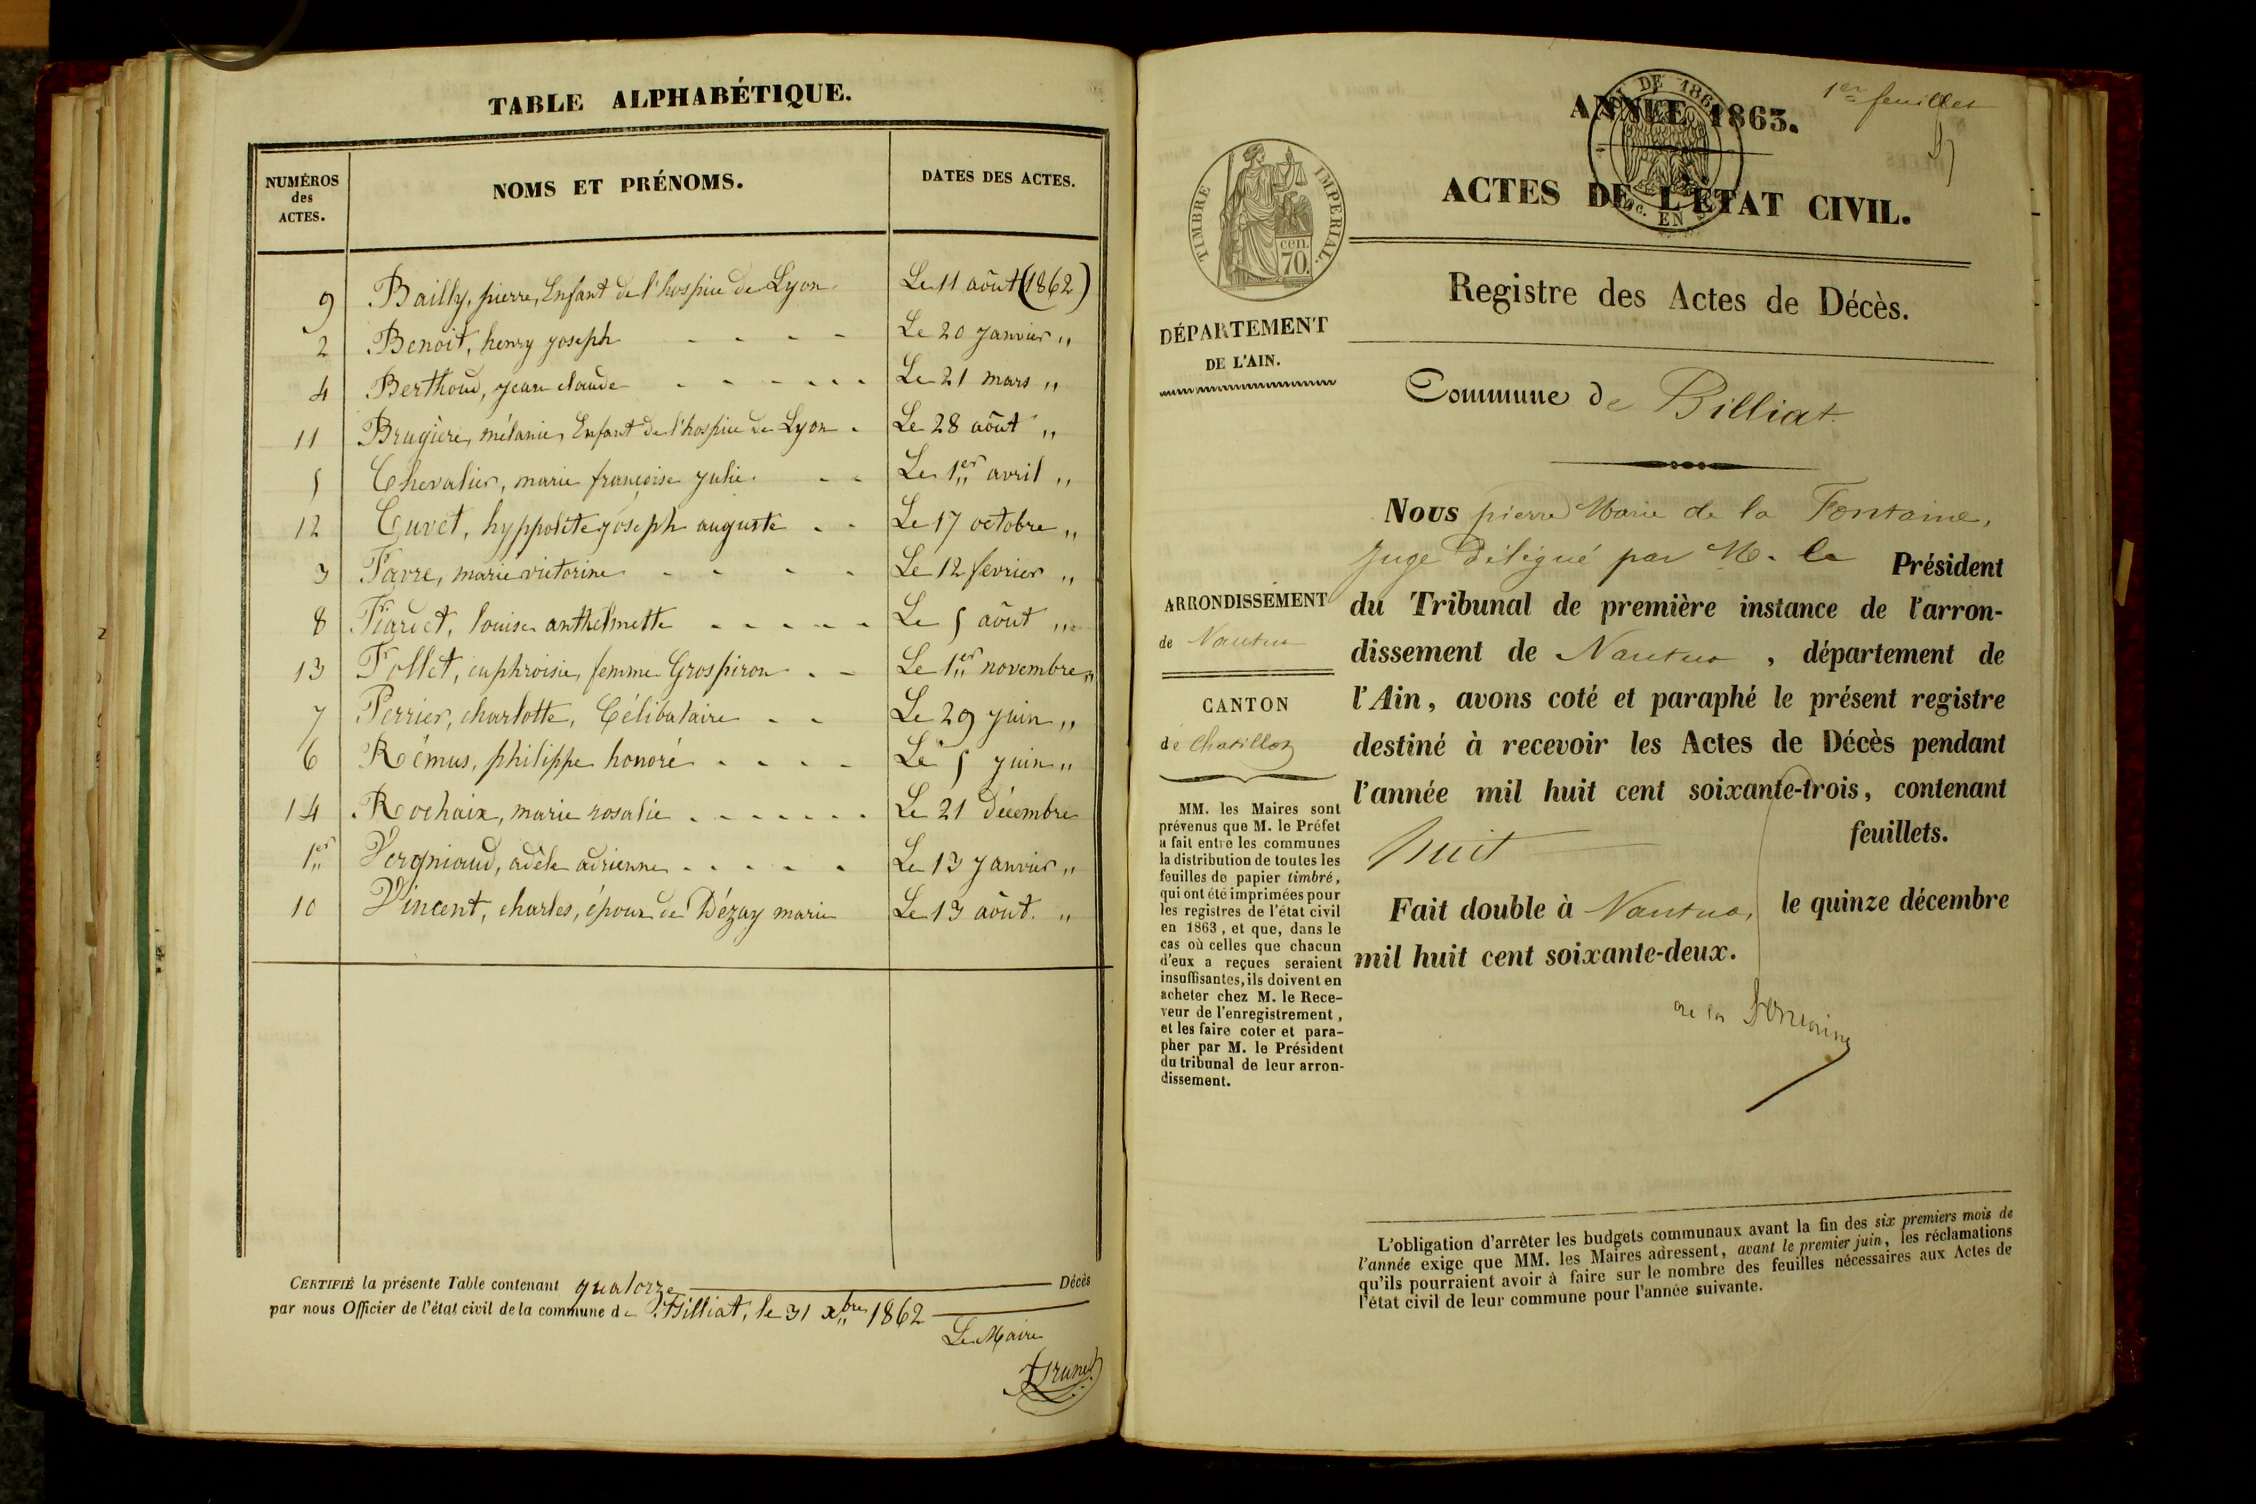 TABLE ALPHABÉTIQUE.
NUMÉROS
des
ACTES.
NOMS ET PRÉNOMS.
DATES DES ACTES.
9 Bailly, pierre, Enfant de l'hospice de Lyon. Le 11 aôut (1862)
2 Benoit, henry joseph - - - - Le 20 janvier "
4 Berthoud, jean claude - - - - - - Le 21 mars "
11 Brugière, mélanie, Enfant de l'hospice de Lyon - Le 28 aôut "
5 Chevalier, marie françoise julie. - - Le 1er avril "
12 Curet, hyppolite joseph auguste - - Le 17 octobre "
3 Favre, marie victorine - - - - Le 12 fevrier "
8 louise anthelmette - - - - - Le 5 aôut "
13 Follet, euphroisie, femme Grospiron - - Le 1er novembre "
7 Perrier, charlotte, Célibataire - - Le 29 juin "
6 Rémus, philippe honoré - - - - Le 5 juin "
14 Rochaix, marie rosalie - - - - - - - Le 21 décembre
1er Vergniaud, adèle adrienne - - - - - Le 13 janvier "
10 Vincent, charles, époux de Dézay marie Le 13 aôut. "
CERTIFIÉ la présente Table contenant quatorze Décès
par nous Officier de l'état civil de la commune de Billiat, le 31 xbre 1862
Le Maire
Brunet
1er feuillet
ANNÉE 1863.
ACTES DE L'ÉTAT CIVIL.
TIMBRE IMPÉRIAL.
70 cen.
Registre des Actes de Décès.
DÉPARTEMENT
DE L'AIN.
Commune de Billiat.
ARRONDISSEMENT
de Nantua
CANTON
de Chatillon
MM. les Maires sont
prévenus que M. le Préfet
a fait entre les communes
la distribution de toutes les
feuilles de papier timbré,
qui ont été imprimées pour
les registres de l'état civil
en 1863, et que, dans le
cas où celles que chacun
d'eux a reçues seraient
insuffisantes, ils doivent en
acheter chez M. le Rece-
veur de l'enregistrement,
et les faire coter et para-
pher par M. le Président
du tribunal de leur arron-
dissement.
Nous pierre Marie de la Fontaine,
juge délégué par M. le Président
du Tribunal de première instance de l'arron-
dissement de Nantua, département de
l'Ain, avons coté et paraphé le présent registre
destiné à recevoir les Actes de Décès pendant
l'année mil huit cent soixante-trois, contenant
huit feuillets.
Fait double à Nantua, le quinze décembre
mil huit cent soixante-deux.
de la Fontaine
L'obligation d'arrêter les budgets communaux avant la fin des six premiers mois de
l'année exige que MM. les Maires adressent, avant le premier juin, les réclamations
qu'ils pourraient avoir à faire sur le nombre des feuilles nécessaires aux Actes de
l'état civil de leur commune pour l'année suivante.